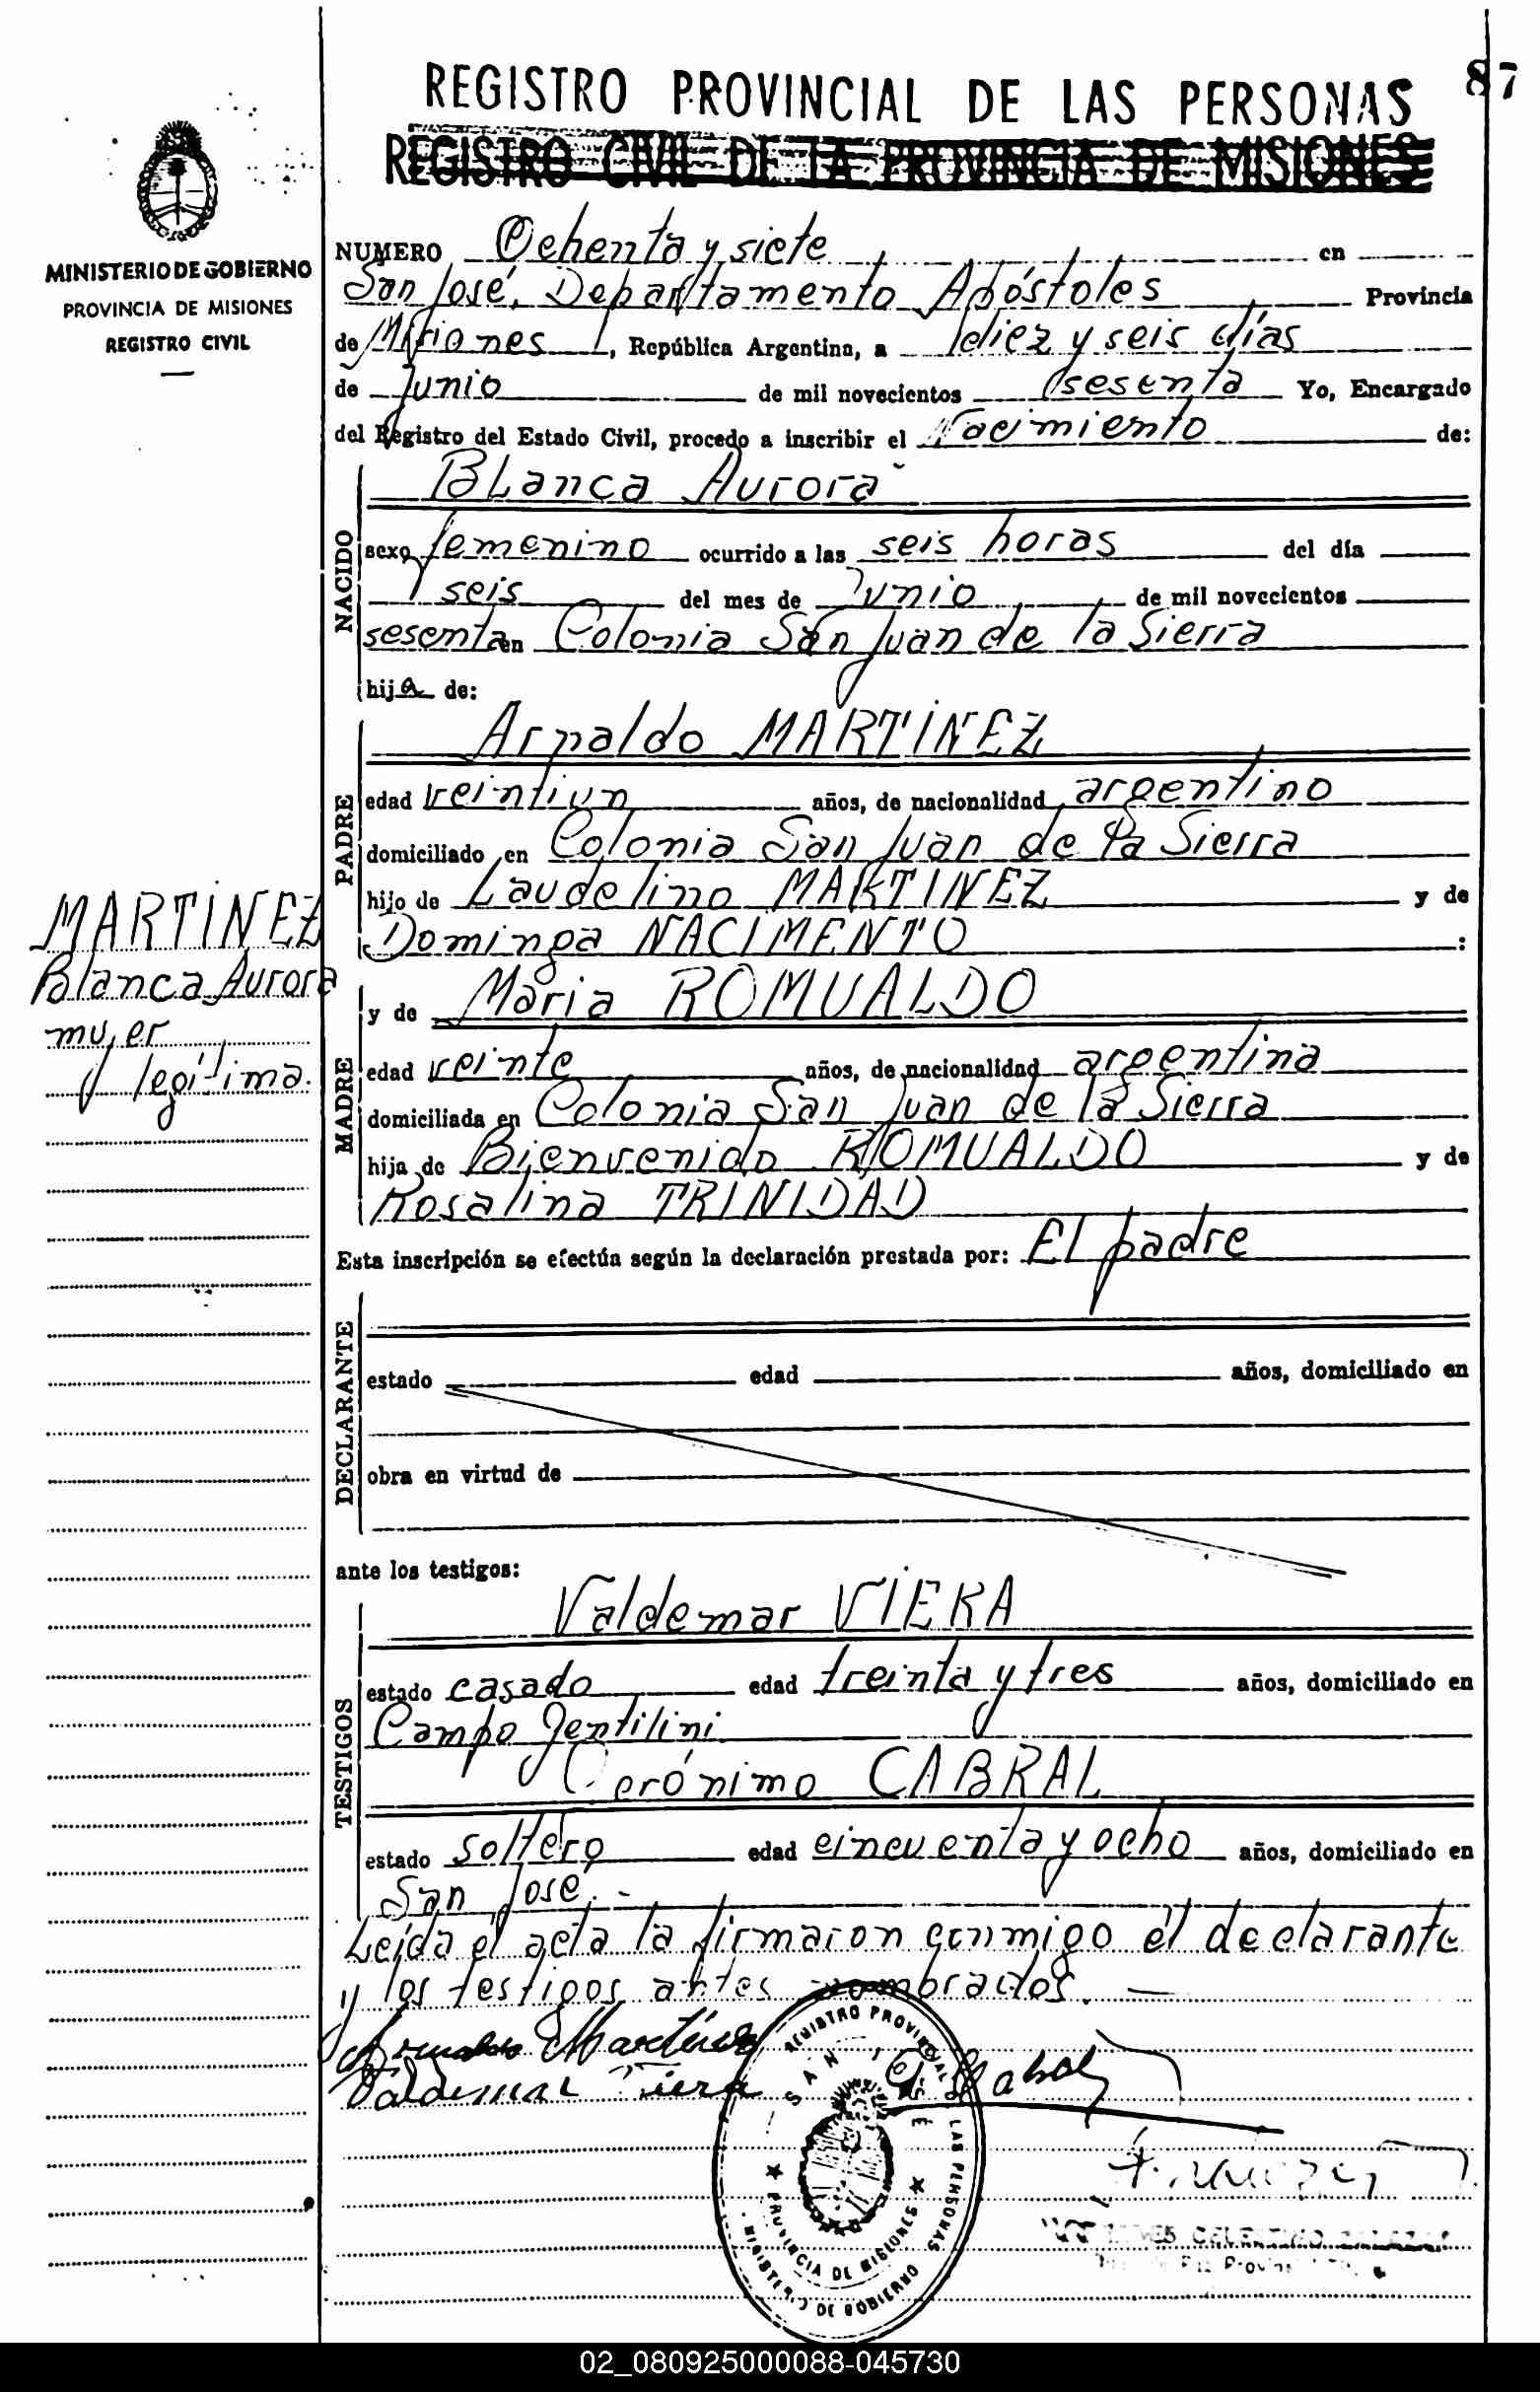 87
REGISTRO PROVINCIAL DE LAS PERSONAS
REGISTRO CIVIL DE LA PROVINCIA DE MISIONES
MINISTERIO DE GOBIERNO
PROVINCIA DE MISIONES
REGISTRO CIVIL
MARTINEZ
Blanca Aurora
mujer
legítima.
NUMERO Ochenta y siete en
San José, Departamento Apóstoles Provincia
de Misiones, República Argentina, a diez y seis días
de Junio de mil novecientos sesenta Yo, Encargado
del Registro del Estado Civil, procedo a inscribir el Nacimiento de:
NACIDO
Blanca Aurora
sexo femenino ocurrido a las seis horas del día
seis del mes de Junio de mil novecientos
sesenta en Colonia San Juan de la Sierra
hija de:
PADRE
Arnaldo MARTINEZ
edad veintiun años, de nacionalidad argentino
domiciliado en Colonia San Juan de la Sierra
hijo de Laudelino MARTINEZ y de
Dominga NACIMENTO :
MADRE
y de Maria ROMUALDO
edad veinte años, de nacionalidad argentina
domiciliada en Colonia San Juan de la Sierra
hija de Bienvenido ROMUALDO y de
Rosalina TRINIDAD
Esta inscripción se efectúa según la declaración prestada por: El padre
DECLARANTE
estado edad años, domiciliado en
obra en virtud de
ante los testigos:
TESTIGOS
Valdemar VIERA
estado casado edad treinta y tres años, domiciliado en
Campo Jentilini
Gerónimo CABRAL
estado soltero edad cincuenta y ocho años, domiciliado en
San José.-
Leída el acta la firmaron conmigo el declarante
y los testigos antes nombrados.—
Arnaldo Martinez
Valdemar Viera
G. Cabral
REGISTRO PROVINCIAL DE LAS PERSONAS
SAN JOSE
PROVINCIA DE MISIONES
MINISTERIO DE GOBIERNO
CELESTINO
02_080925000088-045730